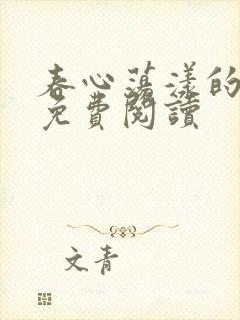 春心蕩漾的
免費閱讀
文青